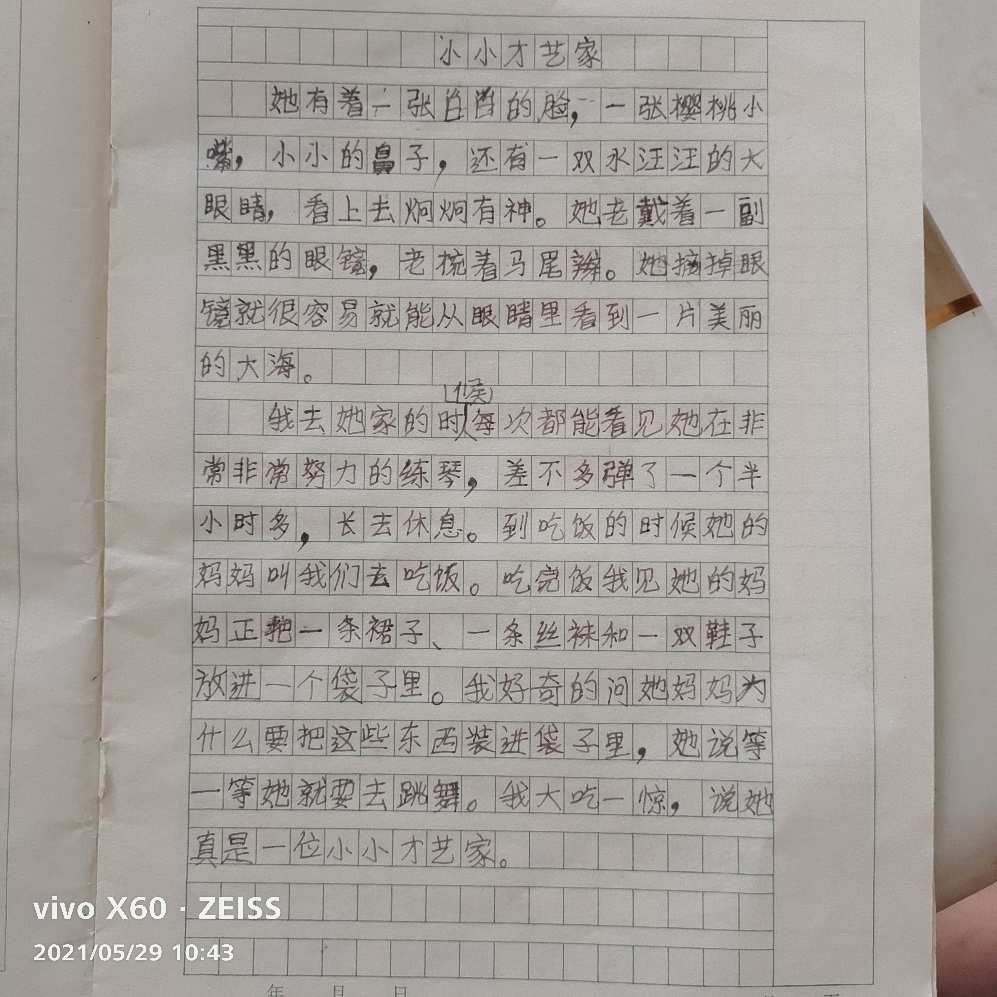 小小才艺家
她有着一张白白的脸，一张樱桃小
嘴，小小的鼻子，还有一双水汪汪的大
眼睛，看上去炯炯有神。她老戴着一副
黑黑的眼镜，老梳着马尾辫。她摘掉眼
镜就很容易就能从眼睛里看到一片美丽
的大海。
(候)
我去她家的时每次都能看见她在非
常非常努力的练琴，差不多弹了一个半
小时多，长去休息。到吃饭的时候她的
妈妈叫我们去吃饭。吃完饭我见她的妈
妈正把一条裙子、一条丝袜和一双鞋子
放进一个袋子里。我好奇的问她妈妈为
什么要把这些东西装进袋子里，她说等
一等她就要去跳舞。我大吃一惊，说她
真是一位小小才艺家。
vivo X60 · ZEISS
2021/05/29 10:43
年 月 日